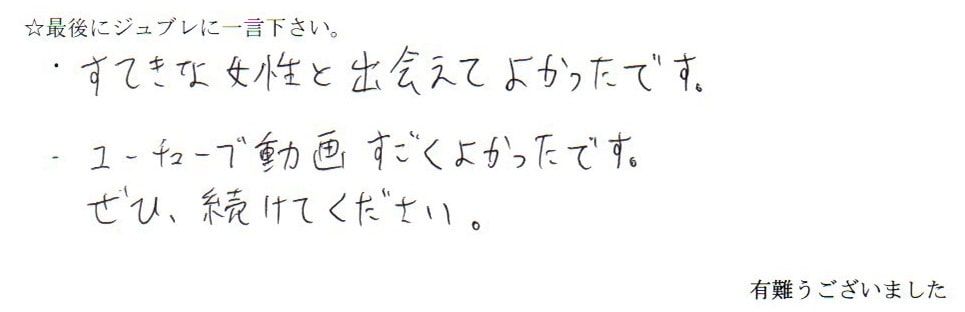 ☆最後にジュブレに一言下さい。
・すてきな女性と出会えてよかったです。
- ユーチューブ動画すごくよかったです。
ぜひ、続けてください。
有難うございました